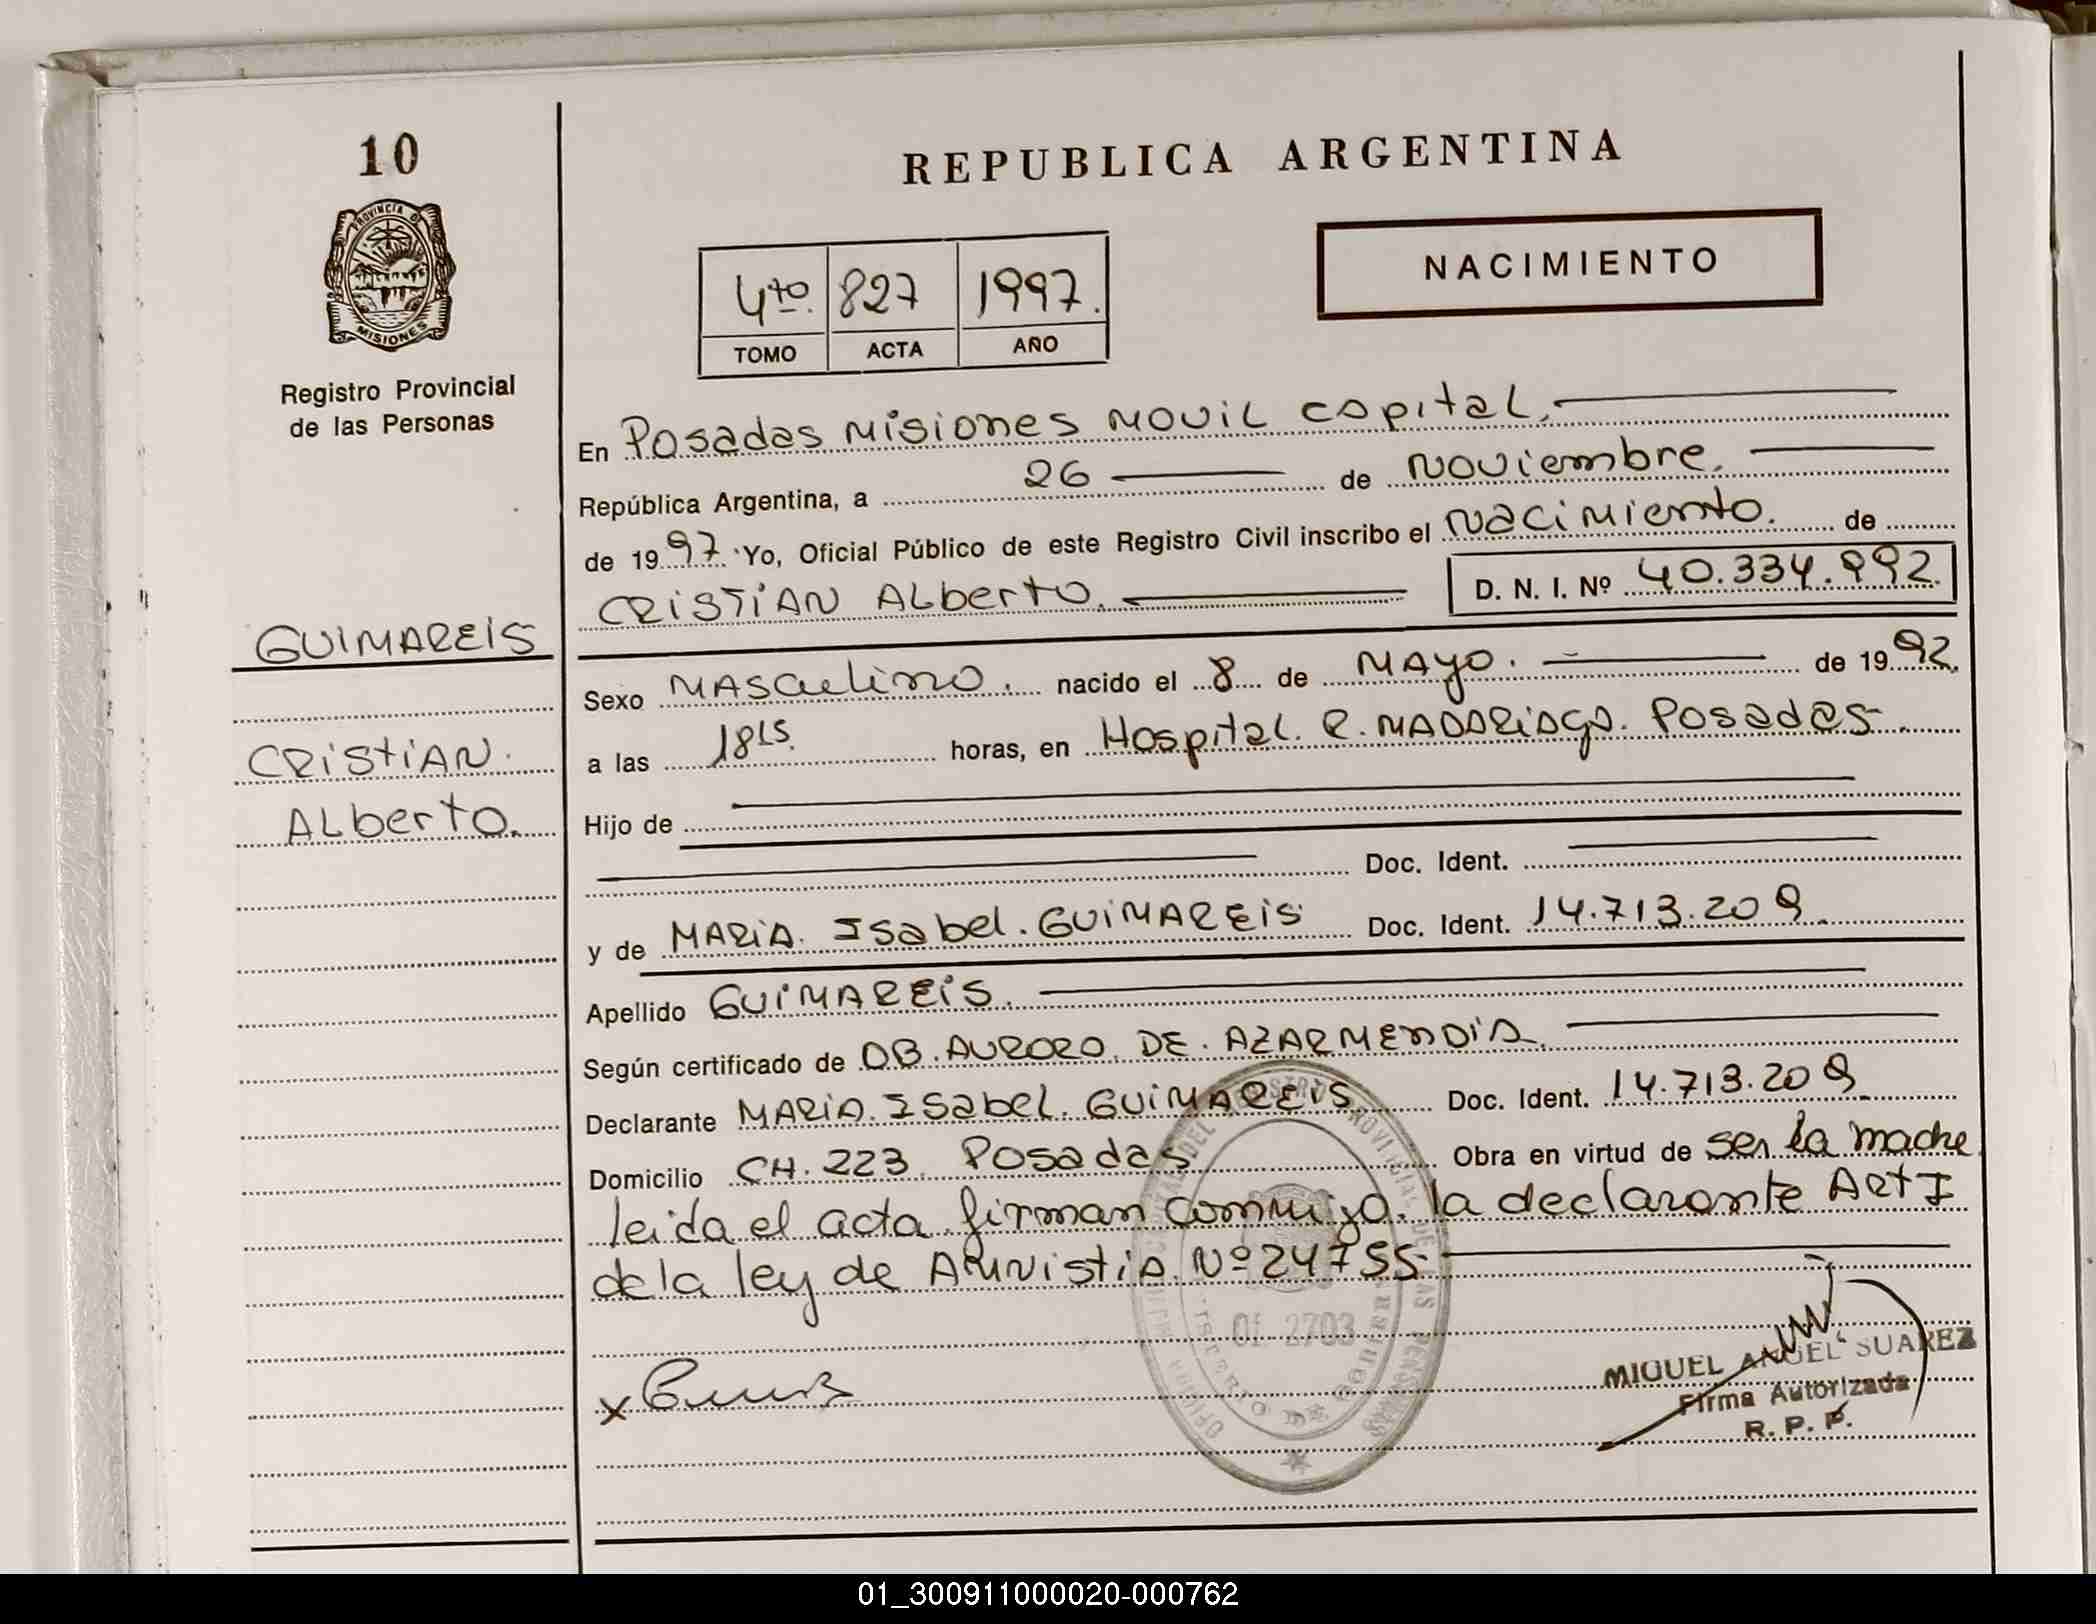 10
PROVINCIA DE
MISIONES
Registro Provincial
de las Personas
GUIMAREIS
CRISTIAN.
ALberto.
REPUBLICA ARGENTINA
4to. 827 1997.
TOMO ACTA AÑO
NACIMIENTO
En Posadas Misiones Movil Capital.
República Argentina, a 26 de Noviembre.
de 1997. Yo, Oficial Público de este Registro Civil inscribo el Nacimiento. de
CRISTIAN ALberto. D. N. I. Nº 40.334.992.
Sexo MASculino. nacido el 8 de MAyo. de 1992.
a las 18 15. horas, en Hospital. R. MADARIAgA. Posadas.
Hijo de
Doc. Ident.
y de MARIA. Isabel. GUIMAREIS Doc. Ident. 14.713.209.
Apellido GUIMAREIS.
Según certificado de OB. AURORO. DE. AZARMENDIA.
Declarante MARIA. Isabel. GUIMAREIS Doc. Ident. 14.713.209.
Domicilio CH. 223. Posadas Obra en virtud de ser la madre
leida el acta firman conmigo. la declarante Art I
de la ley de AMNistiA. Nº 24755
Of. 2703
MIGUEL ANGEL SUAREZ
Firma Autorizada
R. P. P.
01_300911000020-000762